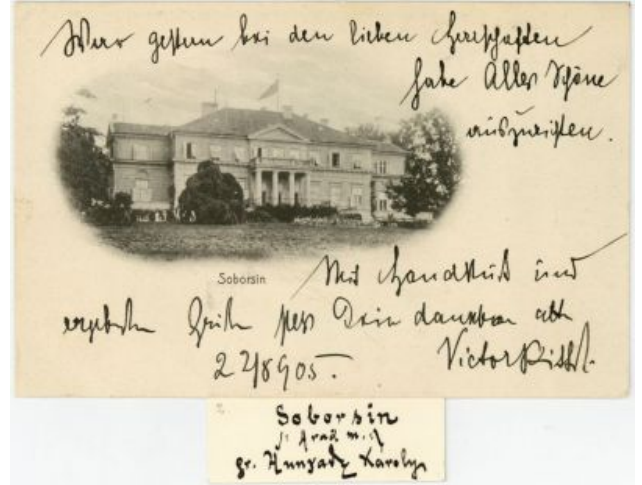 War gestern bei den lieben Herrschaften
habe Alles Schöne
auszurichten.
Soborsin
Mit Handkuß und
ergebensten Grüßen Dein dankbar
22/8 905.
Victor
Soborsin
Arad m.
gr. Hunyady Károly